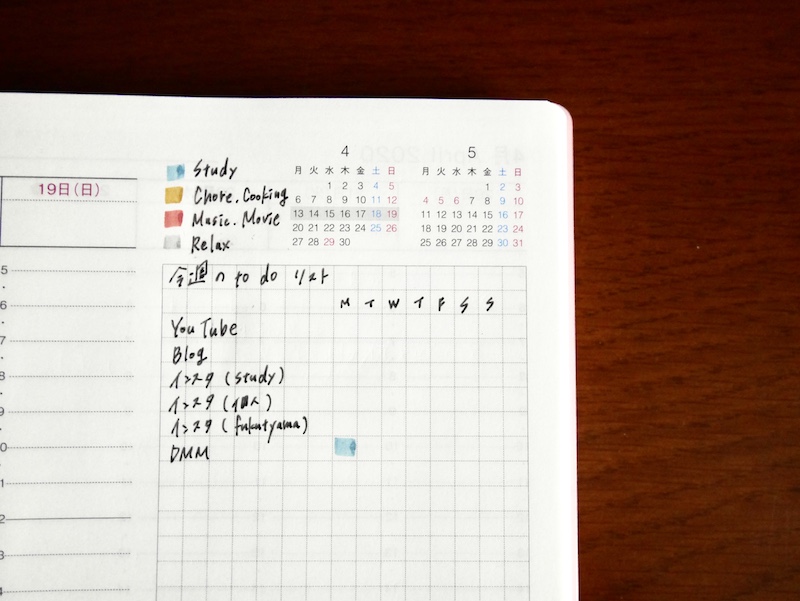 19日(日)
Study
Chore.Cooking
Music.Movie
Relax
4
月 火 水 木 金 土 日
1 2 3 4 5
6 7 8 9 10 11 12
13 14 15 16 17 18 19
20 21 22 23 24 25 26
27 28 29 30
5
月 火 水 木 金 土 日
1 2 3
4 5 6 7 8 9 10
11 12 13 14 15 16 17
18 19 20 21 22 23 24
25 26 27 28 29 30 31
今週の to do リスト
M T W T F S S
YouTube
Blog
インスタ (study)
インスタ (個人)
インスタ (fukutyama)
DMM
5
6
7
8
9
0
1
2
3
4